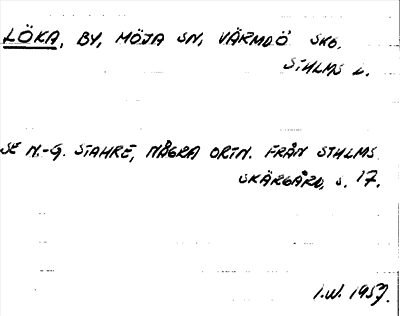 LÖKA, BY, MÖJA SN, VÄRMDÖ SKG.
STHLMS L.
SE N.-G. STAHRE, NÅGRA ORTN. FRÅN STHLMS
SKÄRGÅRD, S. 17.
I.W. 1957.